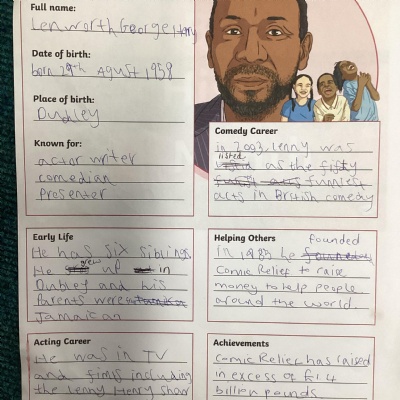 Full name:
Lenworth George Henry
Date of birth:
born 29th Agust 1958
Place of birth:
Dudley
Known for:
actor writer
comedian
Presenter
Comedy Career
in 2003, Lenny was
listed
as the fifty
funniest
acts in British comedy
Early Life
He has six siblings
grew
He up in
Dubley and his
Parents were
Jamaican
Helping Others
founded
in 1985 he
Comic Relief to raise
money to help people
around the world.
Acting Career
He was in TV
and films including
the Lenny Henry Show
Achievements
Comic Relief has raised
in excess of £1.4
billion pounds